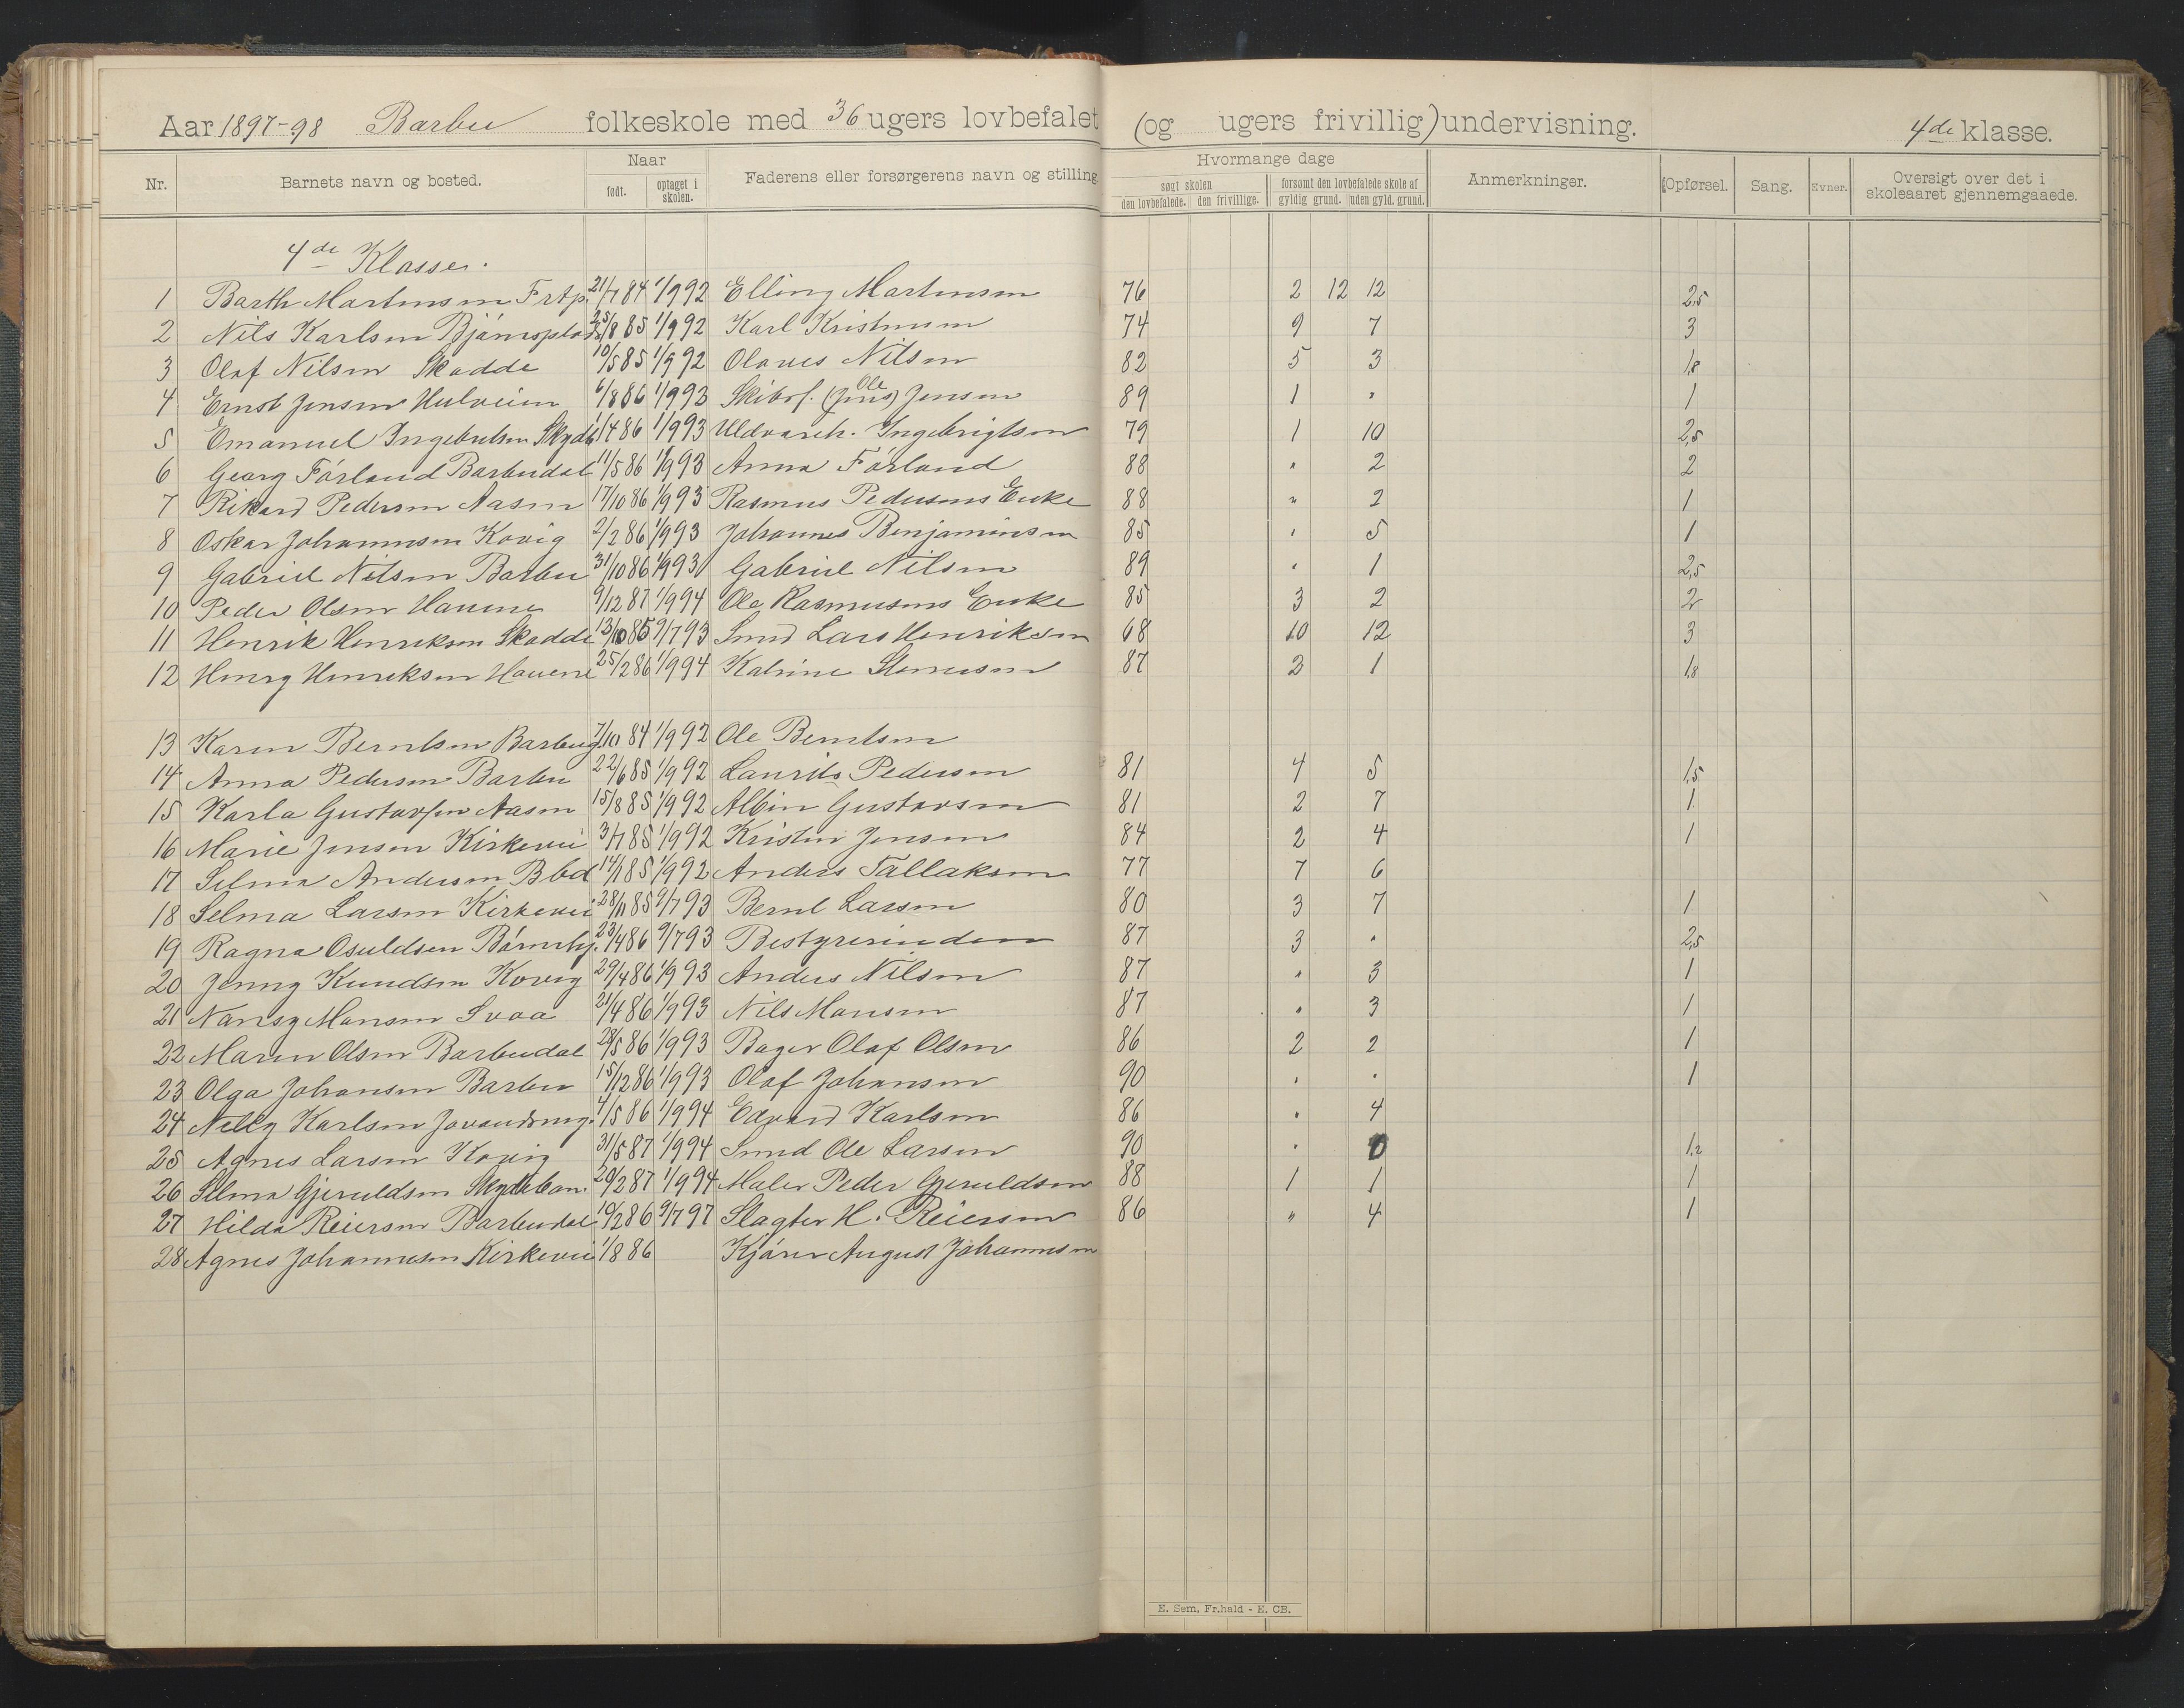 Aar 1897-98 Barbu folkeskole med 36 ugers lovbefalet (og ugers frivillig) undervisning. 4de klasse.
Nr. Barnets navn og bosted. Naar født. optaget i skolen. Faderens eller forsørgerens navn og stilling Hvormange dage søgt skolen den lovbefalede. den frivillige. forsømt den lovbefalede skole af gyldig grund. uden gyld. grund. Anmerkninger. Opførsel. Sang. Evner. Oversigt over det i skoleaaret gjennemgaaede.
4de Klasse.
1 Barth Martinsen 21/7 84 1/9 92 Elling Martinsen 76 2 12 12 2,5
2 Nils Karlsen 25/8 85 1/9 92 Karl Kristensen 74 9 7 3
3 Olaf Nilsen Skadde 10/5 85 1/9 92 Olaves Nilsen 82 5 3 1,8
4 Ernst Jensen 6/8 86 1/9 93 (Jens) Ole Jensen 89 1 " 1
5 Emanuel Ingebretsen 1/4 86 1/9 93 Ingebrigtsen 79 1 10 2,5
6 Georg Førland Barbudal 11/5 86 1/9 93 Anna Førland 88 " 2 2
7 Rikard Pedersen Aasen 17/10 86 1/9 93 Rasmus Pedersens Enke 88 " 2 1
8 Oskar Johannesen Kovig 2/2 86 1/9 93 Johannes Benjaminsen 85 " 5 1
9 Gabriel Nilsen Barbu 31/10 86 1/9 93 Gabriel Nilsen 89 " 1 2,5
10 Peder Olsen Havene 9/12 87 1/9 94 Ole Rasmusens Enke 85 3 2 2
11 Henrik Henriksen Skadde 13/10 85 9/7 93 Smed Lars Henriksen 68 10 12 3
12 Henry Henriksen Havene 25/2 86 1/9 94 Katrine 87 2 1 1,8
13 Karen Berntsen 7/10 84 1/9 92 Ole Berntsen
14 Anna Pedersen Barbu 22/6 85 1/9 92 Laurits Pedersen 81 4 5 1,5
15 Karla Gustavsen Aasen 15/8 85 1/9 92 Albin Gustavsen 81 2 7 1
16 Marie Jensen Kirkevei 3/7 85 1/9 92 Kristen Jensen 84 2 4 1
17 Selma Andersen Bbd 14/1 85 1/9 92 Anders Tallaksen 77 7 6
18 Selma Larsen Kirkevei 28/11 85 9/7 93 Bernt Larsen 80 3 7 1
19 Ragna Osuldsen Børnehj. 23/4 86 9/7 93 Bestyrerinden 87 3 " 2,5
20 Jenny Knudsen Kovig 29/4 86 1/9 93 Anders Nilsen 87 " 3 1
21 Nansy Monsen Svaa 21/4 86 1/9 93 Nils Monsen 87 " 3 1
22 Maren Olsen Barbudal 28/5 86 1/9 93 Bager Olaf Olsen 86 2 2 1
23 Olga Johansen Barbu 15/12 86 1/9 93 Olaf Johansen 90 " " 1
24 Nelly Karlsen 4/5 86 1/9 94 Edvard Karlsen 86 " 4
25 Agnes Larsen Kovig 31/5 87 1/9 94 Smed Ole Larsen 90 " 0 1,2
26 Selma Gjeruldsen Skydeban. 20/2 87 1/9 94 Maler Peder Gjeruldsen 88 1 1 1
27 Hilda Reiersen Barbudal 10/2 86 9/7 97 Slagter H. Reiersen 86 " 4 1
28 Agnes Johannesen Kirkevei 1/8 86 Kjører August Johannesen
E. Sem, Fr.hald - E. CB.